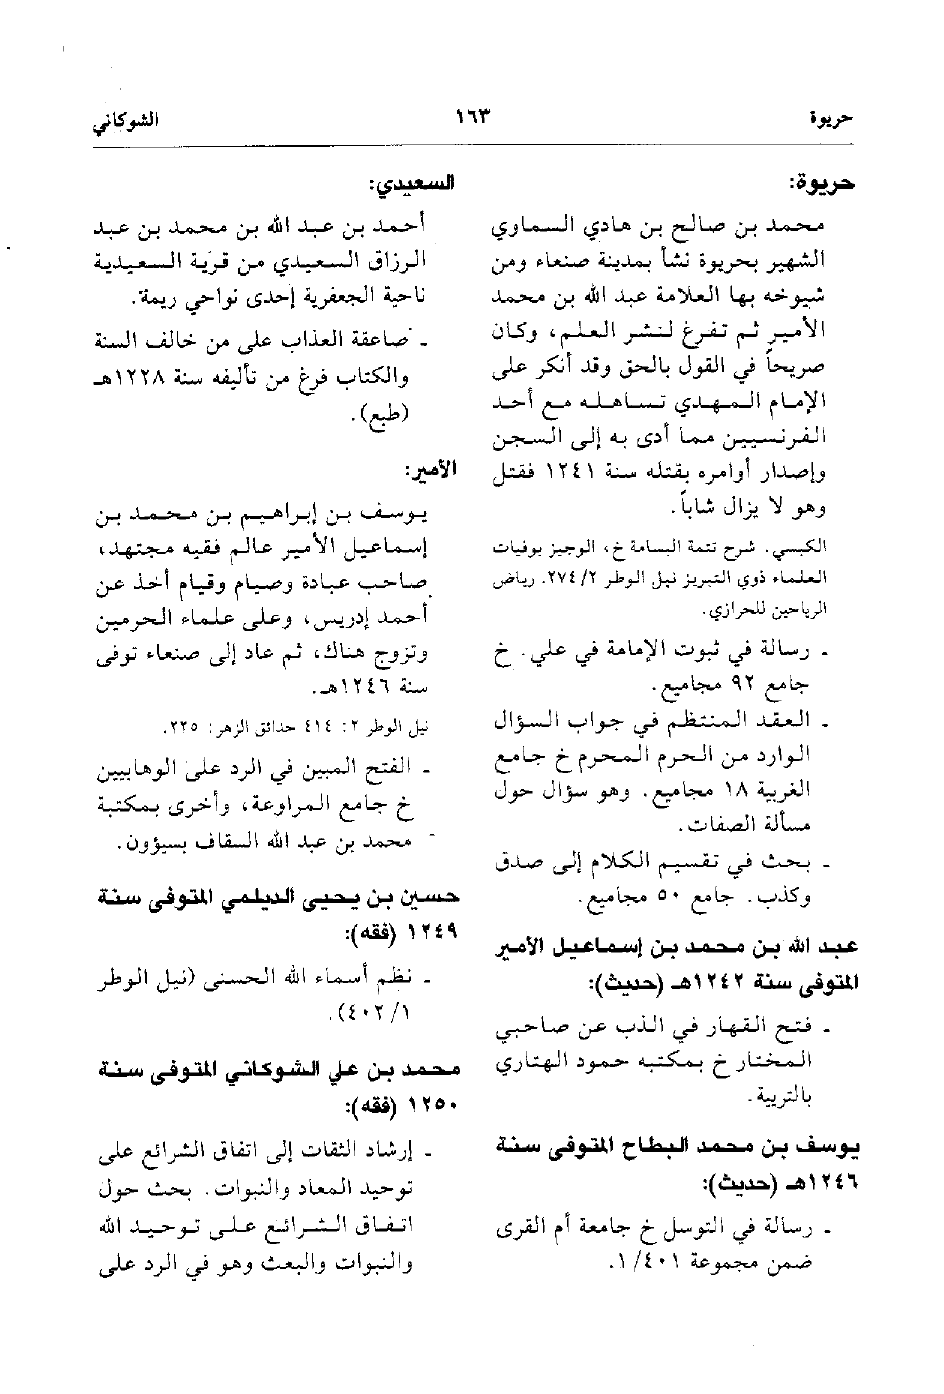 حريوة
١٦٣
الشوكاني
حريوة:
محمد بن صالح بن هادي السماوي
الشهير بحريوة نشأ بمدينة صنعاء ومن
شيوخه بها العلامة عبد الله بن محمد
الأمير ثم تفرغ لنشر العلم، وكان
صريحاً في القول بالحق وقد أنكر على
الإمام المهدي تساهله مع أحد
الفرنسيين مما أدى به إلى السجن
وإصدار أوامره بقتله سنة ١٢٤١ فقتل
وهو لا يزال شاباً.
الكبسي. شرح تتمة البسامة خ، الوجيز بوفيات
العلماء ذوي التبريز نيل الوطر ٢/ ٢٧٤. رياض
الرياحين للحرازي.
ـ رسالة في ثبوت الإمامة في علي. خ
جامع ٩٢ مجاميع.
ـ العقد المنتظم في جواب السؤال
الوارد من الحرم المحرم خ جامع
الغربية ١٨ مجاميع. وهو سؤال حول
مسألة الصفات.
ـ بحث في تقسيم الكلام إلى صدق
وكذب. جامع ٥٠ مجاميع.
عبد الله بن محمد بن إسماعيل الأمير
المتوفى سنة ١٢٤٢هـ (حديث):
ـ فتح القهار في الذب عن صاحبي
المختار خ بمكتبه حمود الهتاري
بالتربية.
يوسف بن محمد البطاح المتوفى سنة
١٢٤٦هـ (حديث):
ـ رسالة في التوسل خ جامعة أم القرى
ضمن مجموعة ٤٠١/ ١.
السعيدي:
أحمد بن عبد الله بن محمد بن عبد
الرزاق السعيدي من قرية السعيدية
ناحية الجعفرية إحدى نواحي ريمة.
ـ صاعقة العذاب على من خالف السنة
والكتاب فرغ من تأليفه سنة ١٢٢٨هـ
(طبع).
الأمير:
يوسف بن إبراهيم بن محمد بن
إسماعيل الأمير عالم فقيه مجتهد،
صاحب عبادة وصيام وقيام أخذ عن
أحمد إدريس، وعلى علماء الحرمين
وتزوج هناك، ثم عاد إلى صنعاء توفى
سنة ١٢٤٦هـ.
نيل الوطر ٢: ٤١٤ حدائق الزهر: ٢٢٥.
ـ الفتح المبين في الرد على الوهابيين
خ جامع المراوعة، وأخرى بمكتبة
محمد بن عبد الله السقاف بسيؤون.
حسين بن يحيى الديلمي المتوفى سنة
١٢٤٩ (فقه):
ـ نظم أسماء الله الحسنى (نيل الوطر
١/ ٤٠٢).
محمد بن علي الشوكاني المتوفى سنة
١٢٥٠ (فقه):
ـ إرشاد الثقات إلى اتفاق الشرائع على
توحيد المعاد والنبوات. بحث حول
اتفاق الشرائع على توحيد الله
والنبوات والبعث وهو في الرد على